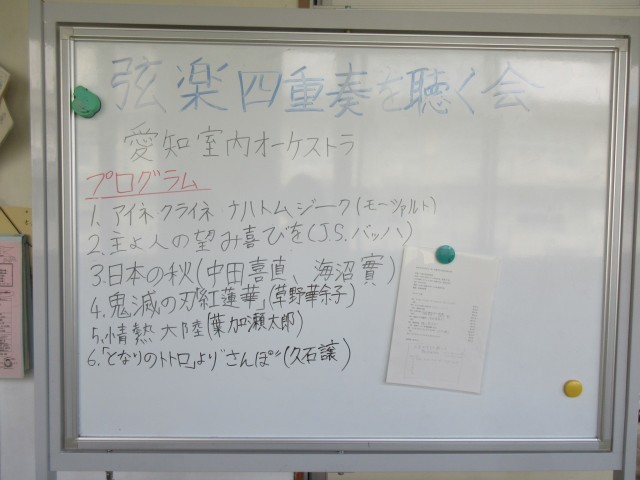 弦楽四重奏を聴く会
愛知室内オーケストラ
プログラム
1. アイネ クライネ ナハトムジーク(モーツァルト)
2. 主よ人の望み喜びを(J.S.バッハ)
3. 日本の秋(中田喜直、海沼實)
4. 鬼滅の刃「紅蓮華」(草野華余子)
5. 情熱大陸(葉加瀬太郎)
6. 「となりのトトロ」より"さんぽ"(久石譲)